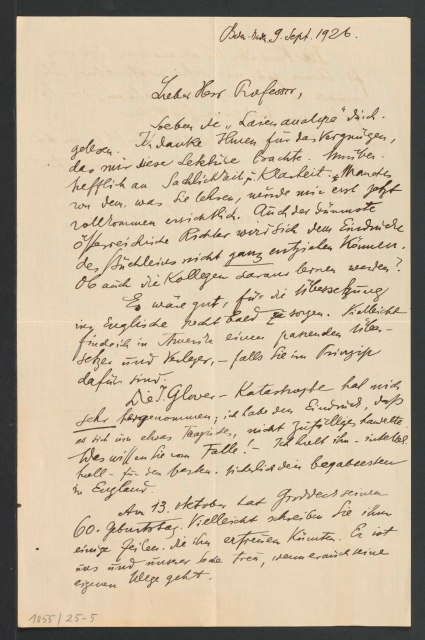 B.-Baden, 9. Sept. 1926.
Lieber Herr Professor,
Soeben die „Laienanalyse" durch-
gelesen. Ich danke Ihnen für das Vergnügen,
das mir diese Lektüre brachte. Unüber-
trefflich an Sachlichkeit u. Klarheit. Manches
von dem, was Sie lehren, wurde mir erst jetzt
vollkommen ersichtlich. Auch der dümmste
österreichische Richter wird sich dem Eindrucke
des Büchleins nicht ganz entziehen können.
Ob auch die Kollegen daraus lernen werden?
Es wäre gut, für die Übersetzung
ins Englische recht bald zu sorgen. Vielleicht
finde ich in Amerika einen passenden Über-
setzer und Verleger, – falls Sie im Prinzip
dafür sind.
Die J. Glover-Katastrophe hat mich
sehr hergenommen; ich habe den Eindruck, daß
es sich um etwas Tragisches, nicht Zufälliges handelte.
Was wissen Sie vom Falle? – Ich hielt ihn – intellek-
tuell – für den besten, sicherlich den begabtesten
in England.
Am 13. Oktober hat Groddeck seinen
60. Geburtstag. Vielleicht schreiben Sie ihm
einige Zeilen, die ihn erfreuen könnten. Er ist
uns und unserer Sache treu, wenn er auch seine
eigenen Wege geht.
1055/25-5